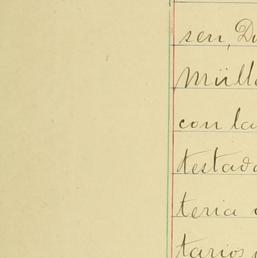 sen, D
Müll
con la
testad
teria
tarios